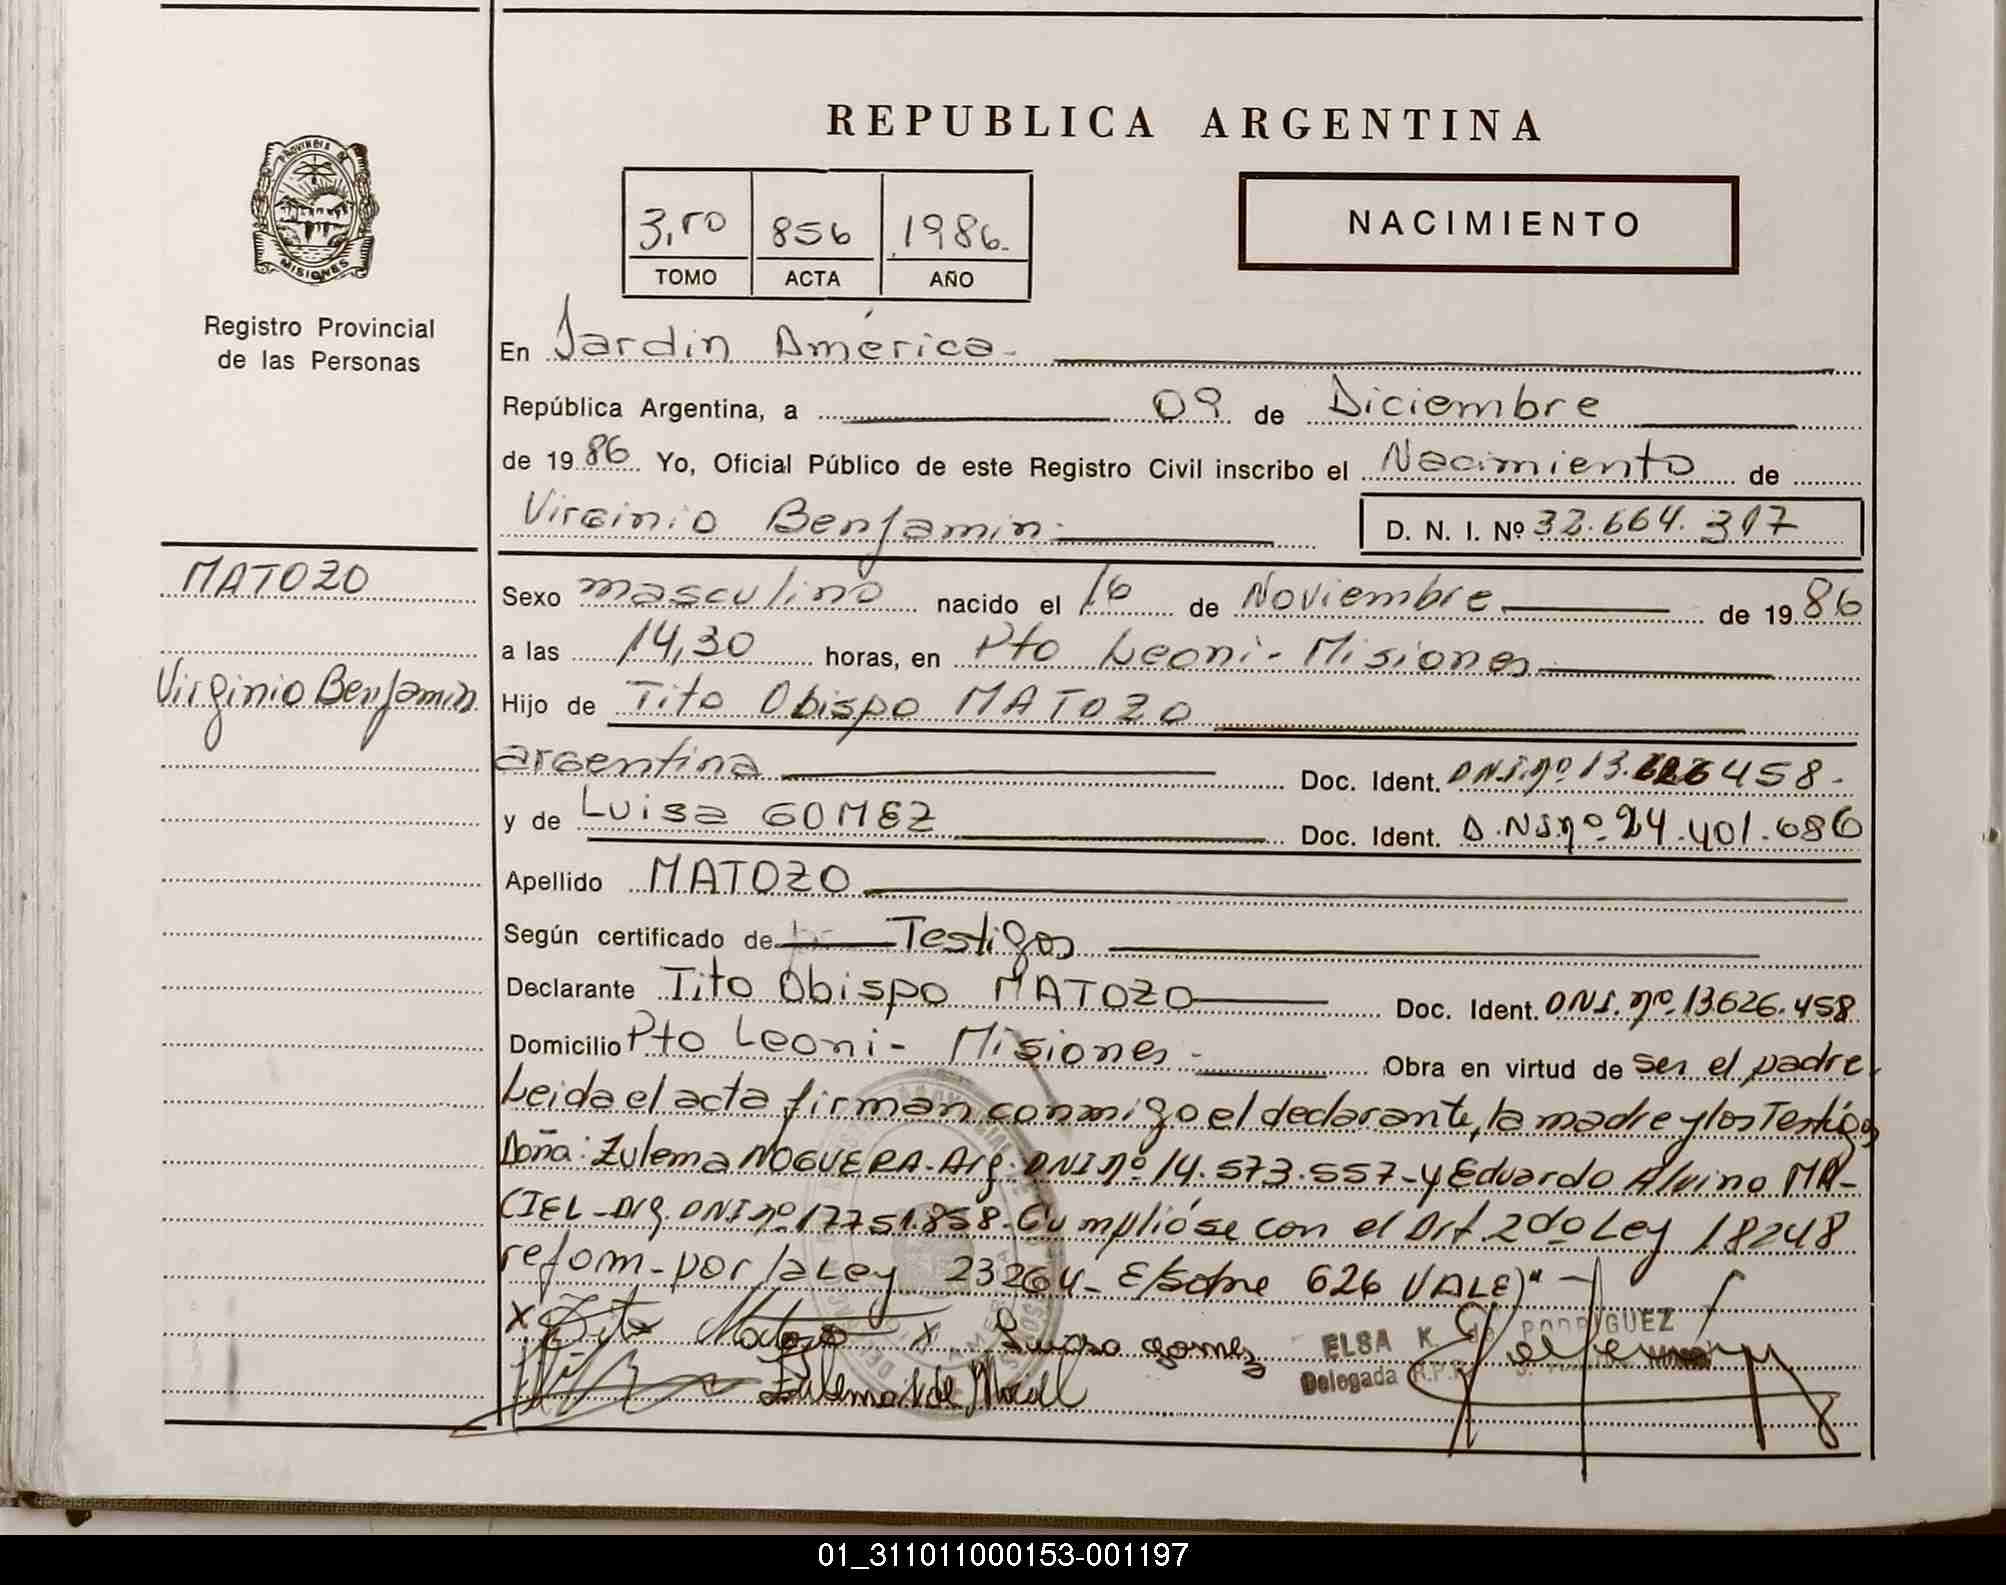 REPUBLICA ARGENTINA
PROVINCIA DE
MISIONES
Registro Provincial
de las Personas
3,ro 856 1986.
TOMO ACTA AÑO
NACIMIENTO
En Jardin América.
República Argentina, a 09 de Diciembre
de 1986 Yo, Oficial Público de este Registro Civil inscribo el Nacimiento de
Virginio Benjamin. D. N. I. Nº 32.664.317
MATOZO
Virginio Benjamin
Sexo masculino nacido el 16 de Noviembre de 1986
a las 14,30 horas, en Pto Leoni - Misiones
Hijo de Tito Obispo MATOZO
argentina Doc. Ident. DNI.nº 13.626458.
y de Luisa GOMEZ Doc. Ident. D.NI.nº.24.401.686
Apellido MATOZO
Según certificado de Testigos
Declarante Tito Obispo MATOZO Doc. Ident. DNI.nº.13.626.458
Domicilio Pto Leoni - Misiones - Obra en virtud de ser el padre.
Leida el acta firman conmigo el declarante, la madre y los Testigos
Doña: Zulema NOGUERA - Arg. DNI nº 14.573.557 - y Eduardo Alvino MA-
CIEL - Arg. DNI nº 17751.858. Cumplióse con el Art. 2do Ley 18248
reform. por la Ley 23264 - E/sobre 626 VALE)"
x Tito Matozo x Luisa gomez
ELSA K. de RODRIGUEZ
Delegada R.P.P.
Zulema N de Maciel
01_311011000153-001197